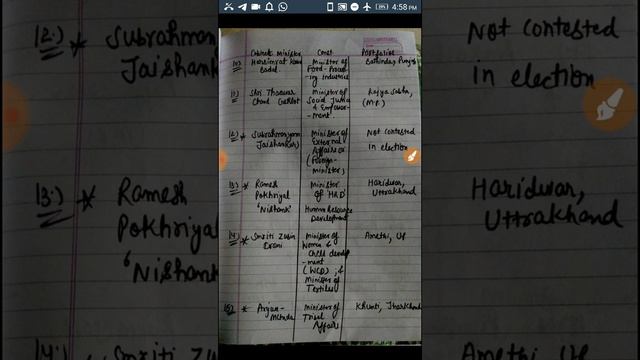 4:58 PM
Cabinet Minister Const. Portfolios
10.) Harsimrat Kaur Badal. Minister of Food-Processing Industries Bathinda, Punjab
11) Shri Thaawar Chand Gehlot Minister of Social Justice & Empowerment. Rajya Sabha, (M.P.)
12.) * Subrahmanyam Jaishankar) Minister of External Affairs or (Foreign Minister) Not contested in election
13.) * Ramesh Pokhriyal 'Nishank' Minister of 'HRD' Human Resource Development Haridwar, Uttrakhand
14.) * Smriti Zubin Irani Minister of Women & Child development (WCD); & Minister of Textiles Amethi, UP
15.) * Arjun-Munda Minister of Tribal Affairs Khunti, Jharkhand
12.) Subrahman
Jaishank
13.) * Ramesh
Pokhriyal
'Nishank
14.) Smriti Zubin
Not contested
in election
Haridwar,
Uttrakhand
Amethi, UP